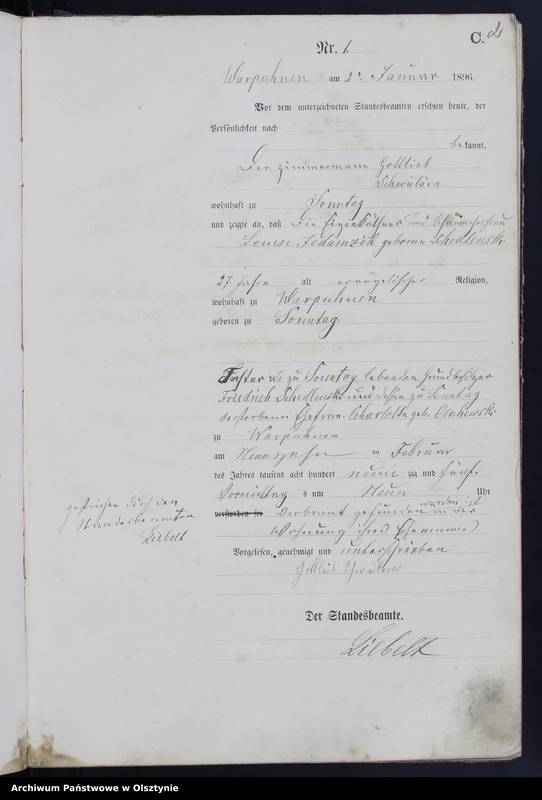 C. 2
Nr. 1
Warpuhnen am 2. Januar 1896.
Vor dem unterzeichneten Standesbeamten erschien heute, der
Persönlichkeit nach
bekannt,
Der Zimmermann Gottlieb
wohnhaft zu Sonntag
und zeigte an, daß die und
Louise Jedamzik geborene
27 Jahre alt evangelischer Religion,
wohnhaft zu Warpuhnen
geboren zu Sonntag
Tochter zu Sonntag lebenden Grundbesitzer
Friedrich und dessen zu Sonntag
verstorbenen Ehefrau Charlotte geb.
zu Warpuhnen
am Februar
des Jahres tausend acht hundert neunzig und fünf
Vormittags um Neun Uhr
verstorben sei verbrannt gefunden worden ist in der
Wohnung ihres Ehemannes
Vorgelesen, genehmigt und unterschrieben
Gottlieb
gestrichen durch den
Standesbeamten
Liebelt
Der Standesbeamte.
Liebelt
Archiwum Państwowe w Olsztynie